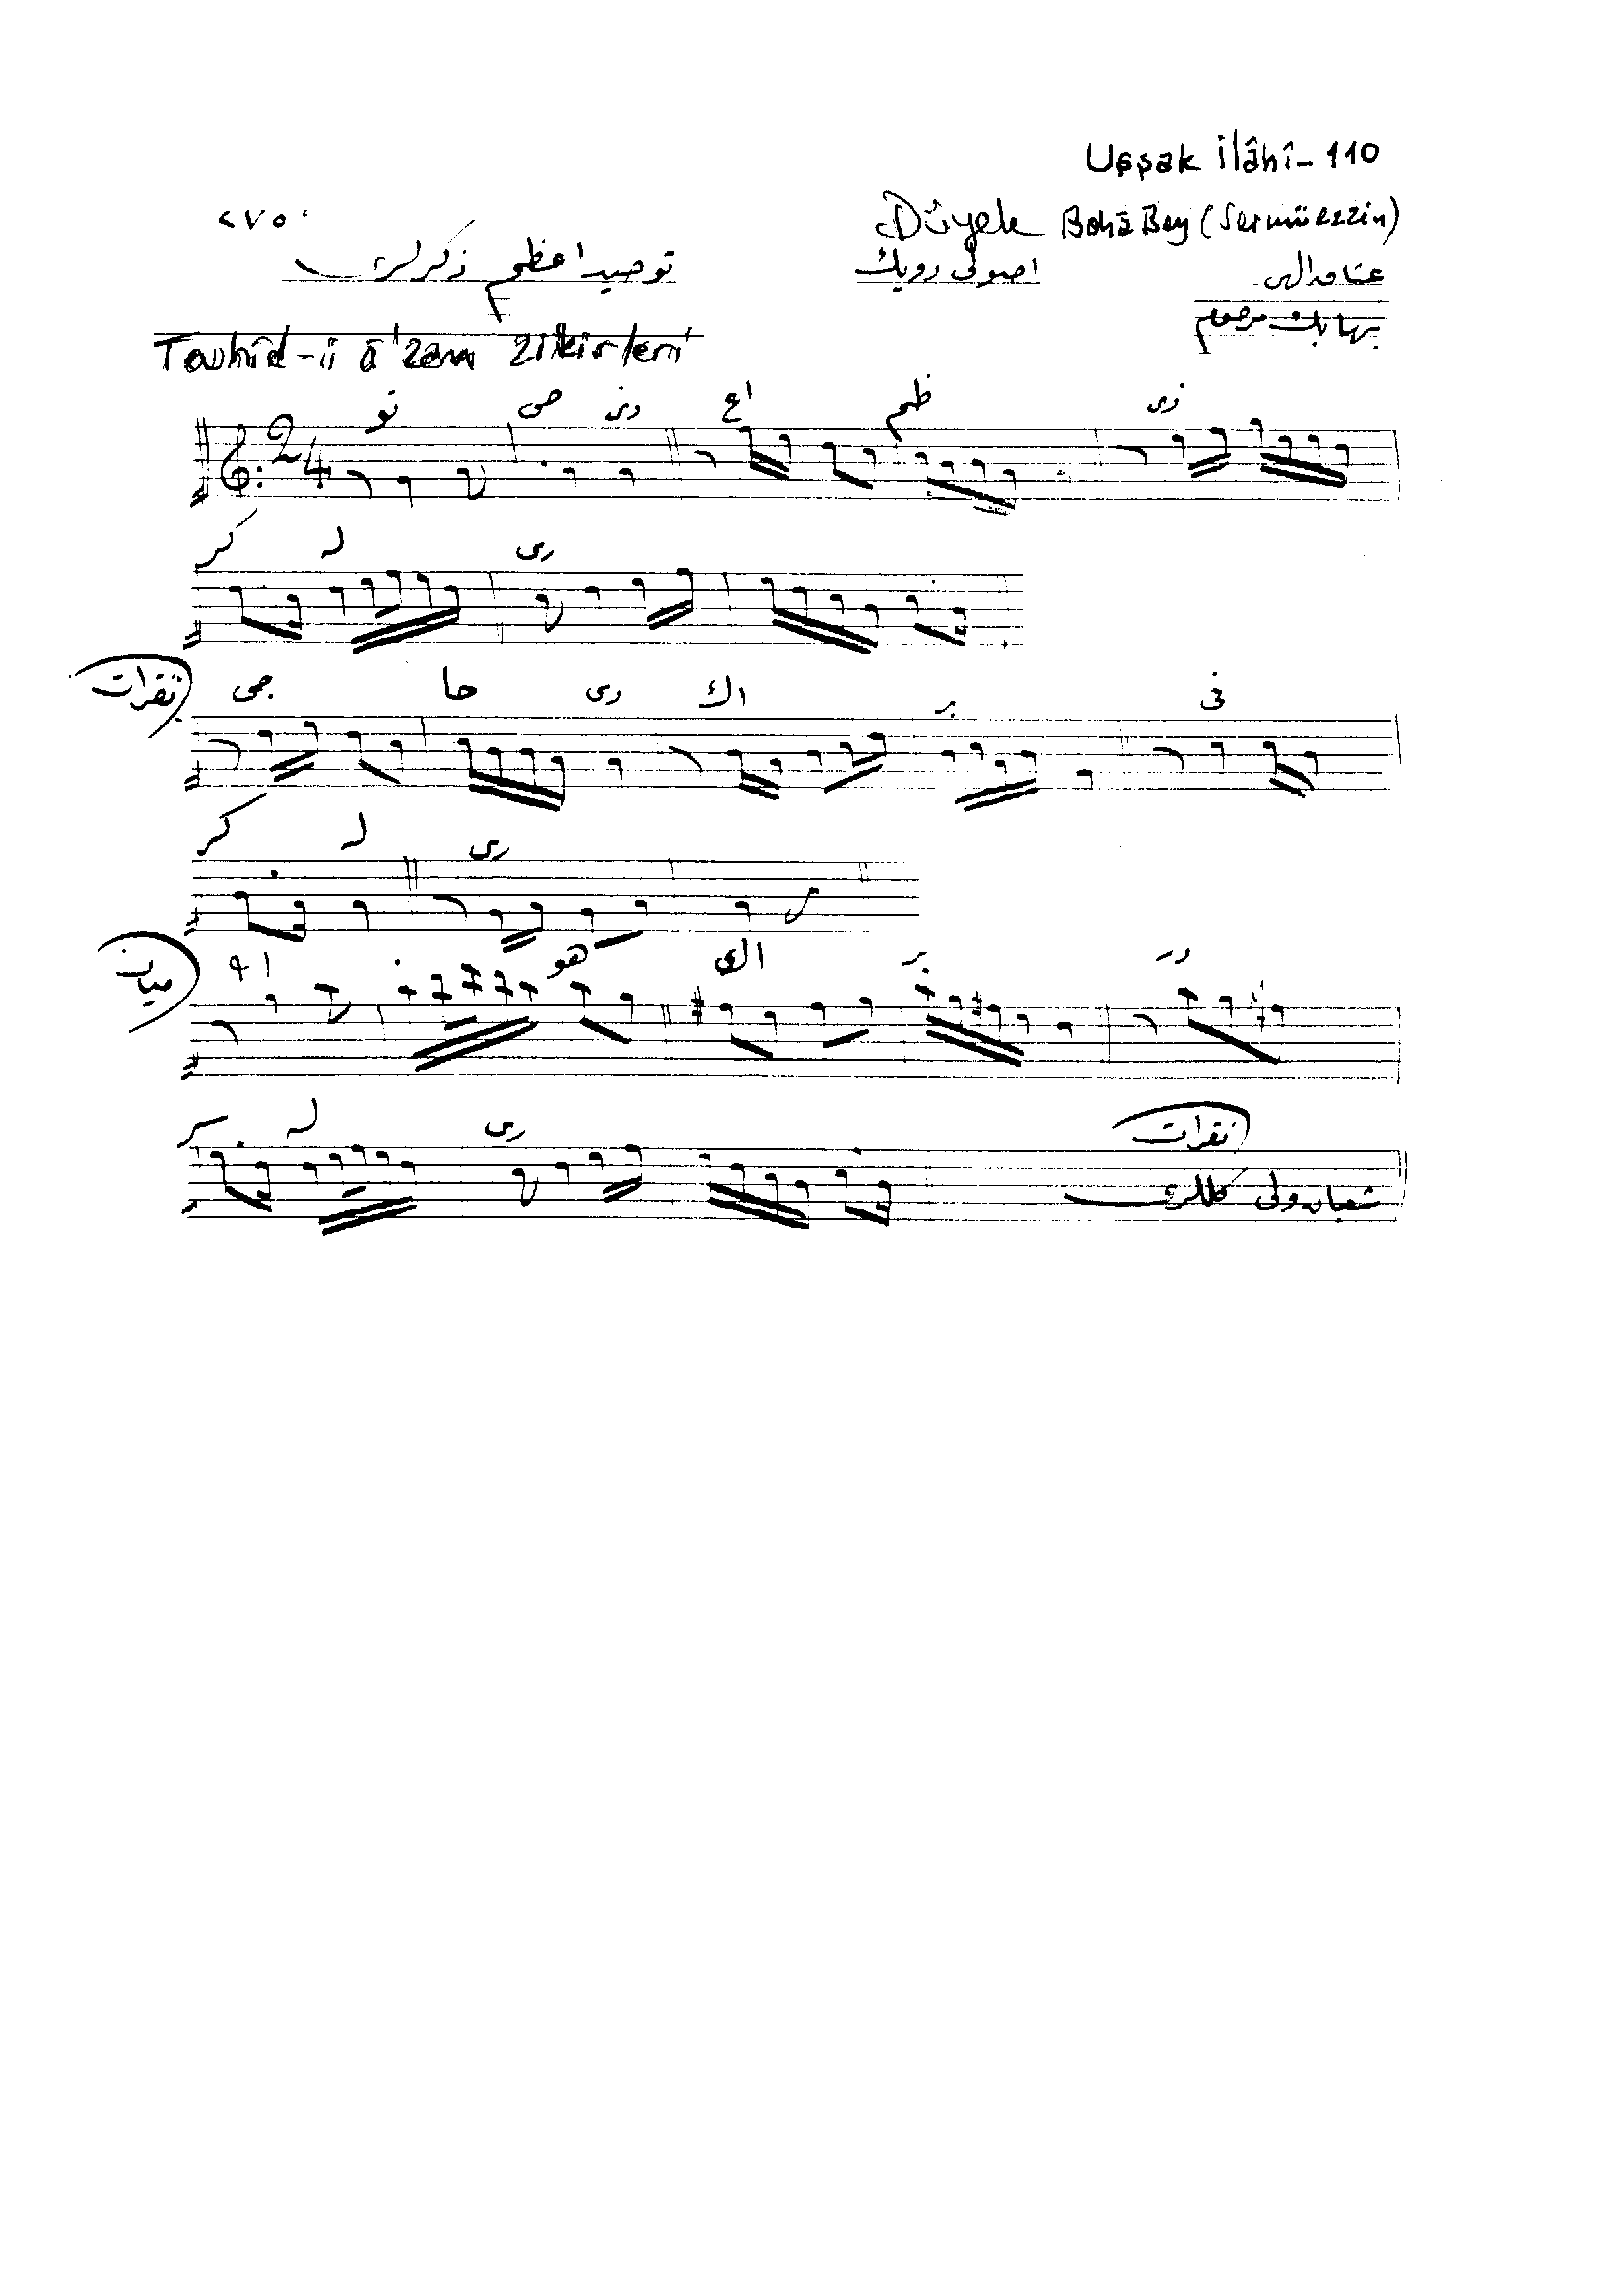 Uşşak ilâhî-110
٢٧٥
Düyek Bahâ Bey (Sermüezzin)
توحيد اعظم ذكرلرى اصولى دويك
بها بك مرحوم
Tevhîd-ii â'zam zikirleri
تو حى دى اع ظم زى
24
كر لر رى
نقرات جى حا رى اك بر
كر لر رى
ميان هو اك بر در
لر رى نقرات
شعبان ولى كللرى